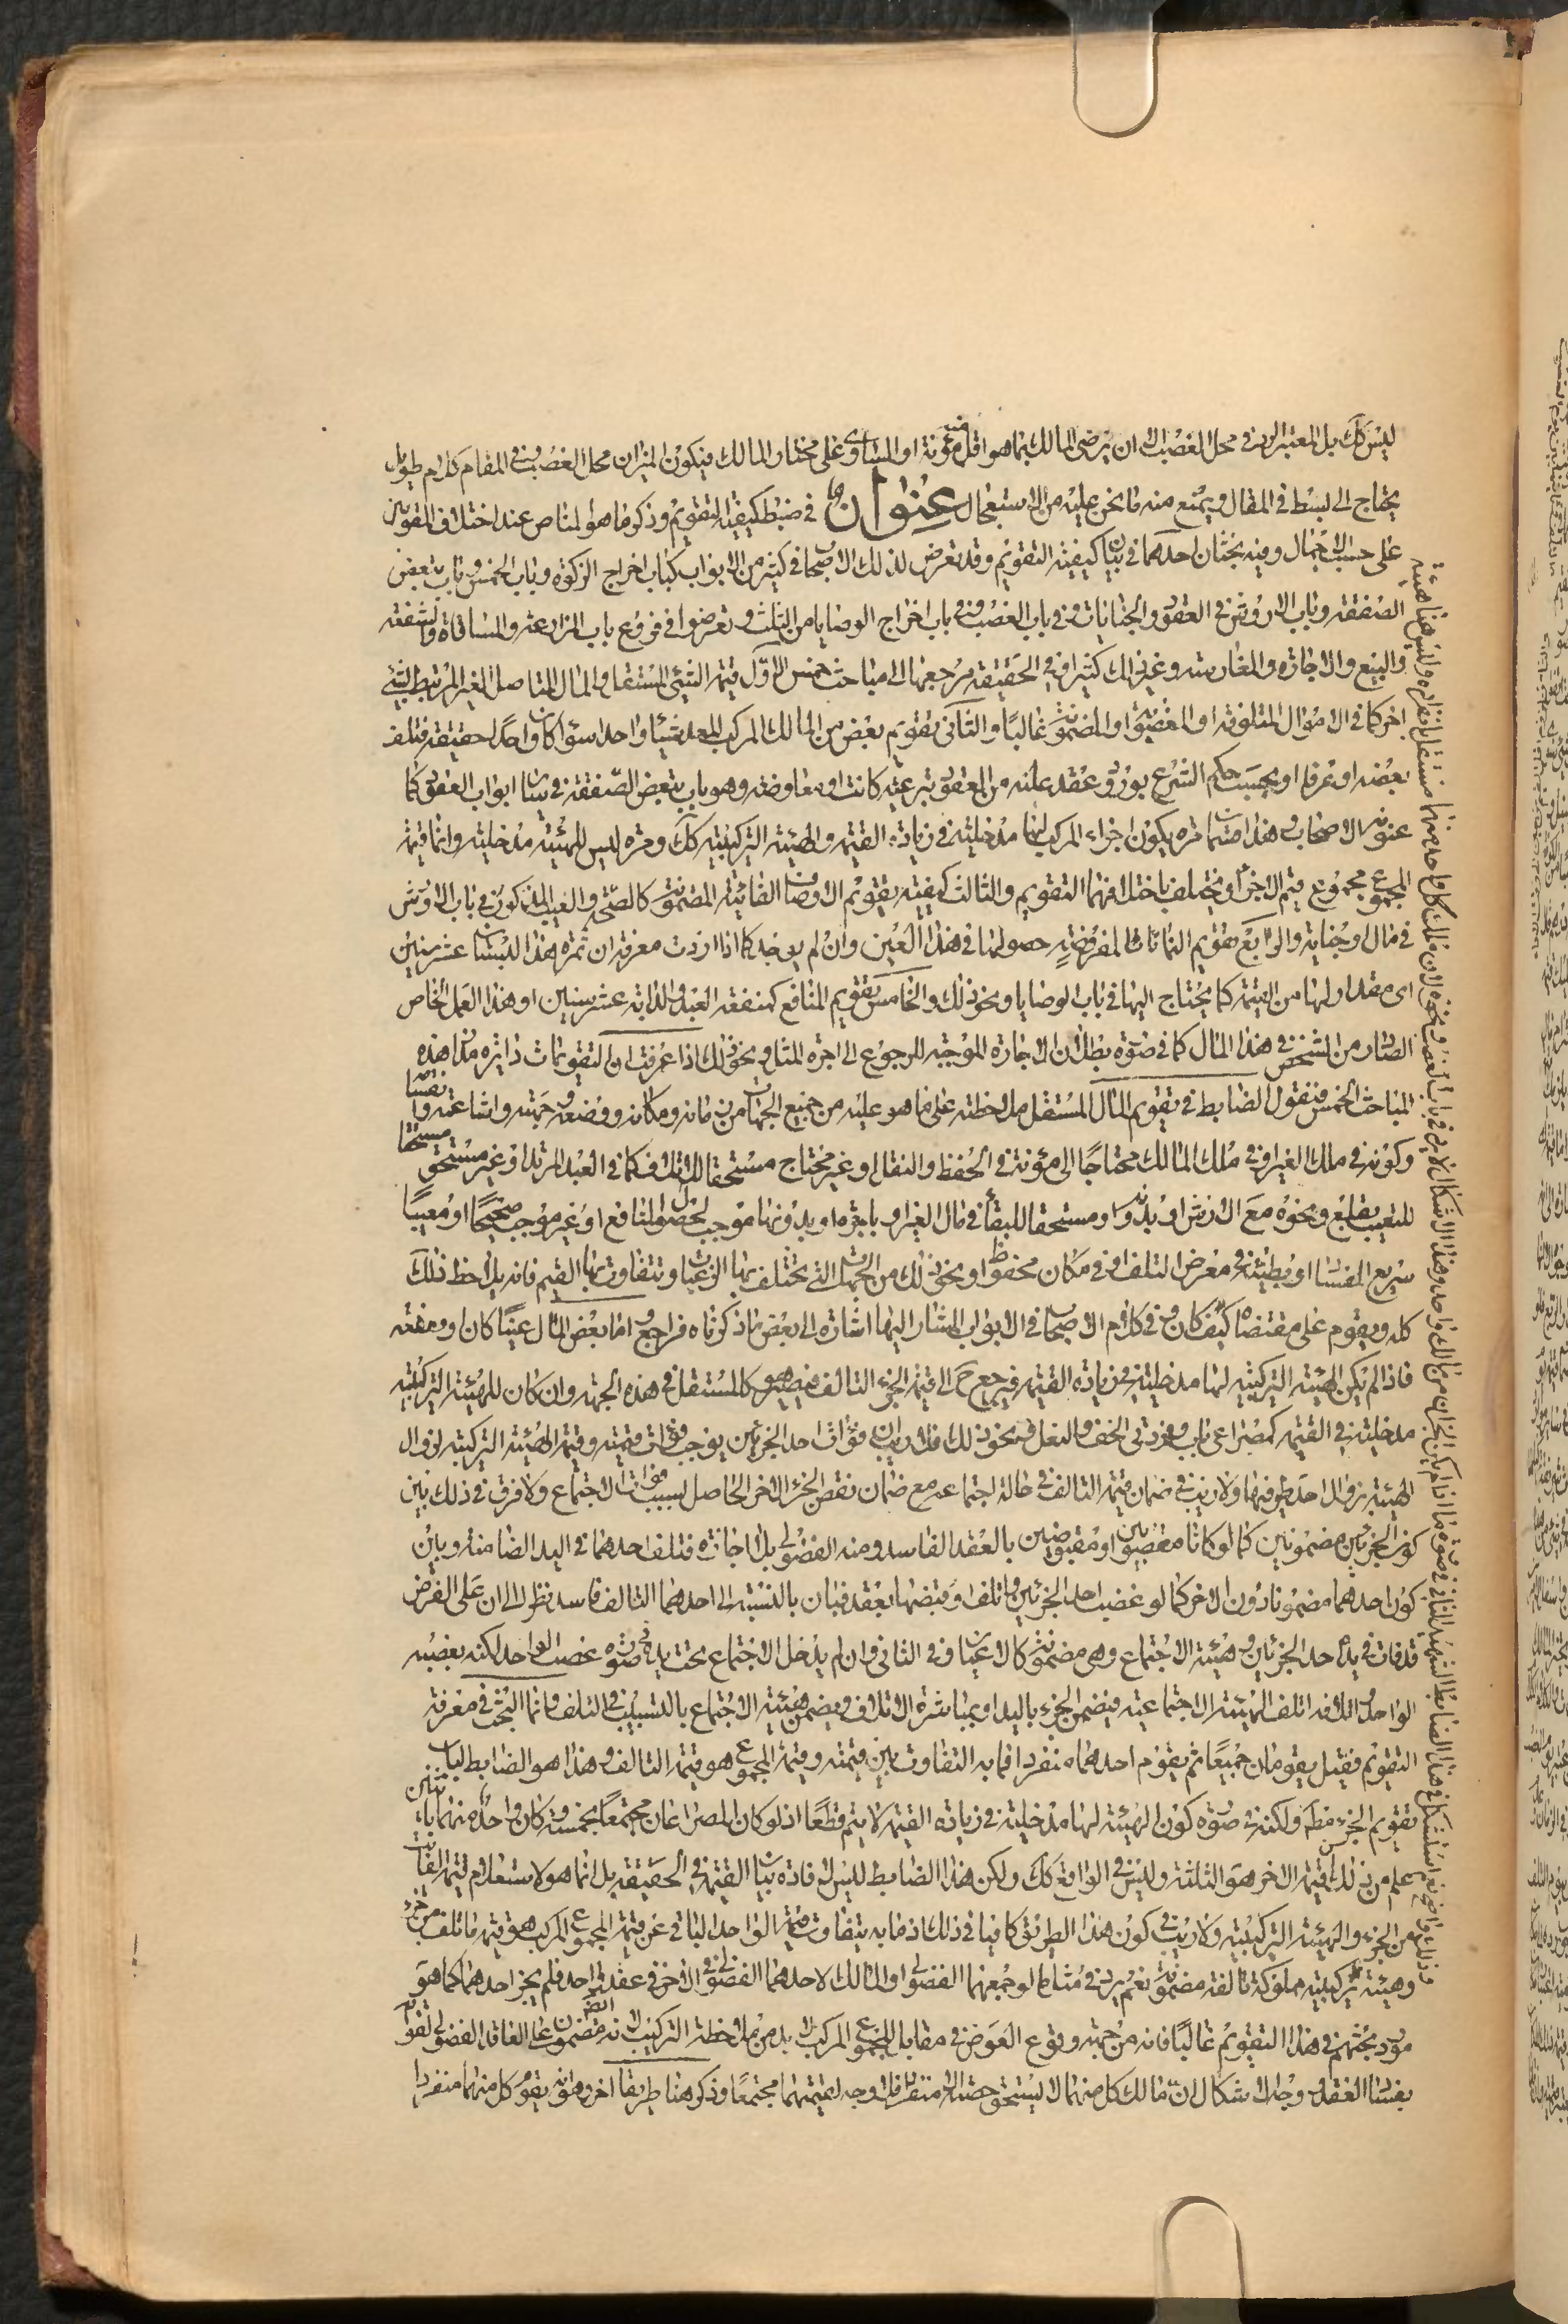 ليس كك بل المعتبر الرد في محل الغصب الا ان يرضى المالك بما هو اقل مؤنة او المساوى على مختار المالك فيكون الميزان محل الغصب وفي المقام كلام طويل
يحتاج الى بسط في المقال ويمنع منه ما نحن عليه من الاستعجال عنوان في ضبط كيفية التقويم وذكر ما هو المناص عند اختلاف المقومين
على حسب الاجمال وفيه بحثان احدهما في بيان كيفية التقويم وقد تعرض لذلك الاصحاب في كثير من الابواب كباب اخراج الزكوة وباب الخمس وباب تبعض
الصفقة وباب الاروش في العقود والجنايات وفي باب الغصب وفي باب اخراج الوصايا من الثلث وتعرضوا في فروع باب المزارعة والمساقاة والشفعة
والبيع والاجارة والعارية وغير ذلك كثيرا وفي الحقيقة مرجعها الى مباحث خمس الاول قيمة الشئ المستقل والمال المتاصل الغير المرتبط بشئ
اخر كما في الاموال المتلوفة او المغصوبة او المضمونة غالبا والثانى تقويم بعض من المالك المركب المعد شيئا واحدا سواء كان واحدا حقيقة فتلف
بعضه او عرفا او بحسب حكم الشرع بورود عقد عليه من العقود تبرعية كانت او معاوضة وهو باب تبعض الصفقة في سائر ابواب العقود كما
عنونه الاصحاب وهذا قسمان تارة يكون اجزاء المركب لها مدخلية في زيادة القيمة والهيئة التركيبية كك ومرة ليس للهيئة مدخلية وانما قيمة
المجموع مجموع قيم الاجزاء ويختلف باختلافهما التقويم والثالث كيفية تقويم الاوصاف الفائتة المضمونة كالصحة والعيب المذكور في باب الاروش
في مال او جناية والرابع تقويم النماءات المفروضة حصولها في هذا العين وان لم يوجد كما اذا اردت معرفة ان ثمرة هذا البستان عشر سنين
اى مقدار لها من القيمة كما يحتاج اليها في باب الوصايا ونحو ذلك والخامس تقويم المنافع كمنفعة العبد والدابة عشر سنين او هذا العمل الخاص
الصادر من الشخص في هذا المال كما في صورة بطلان الاجارة الموجبة للرجوع الى اجرة المثل ونحو ذلك اذا عرفت ان التقويمات دائرة مدار هذه
المباحث الخمس فنقول الضابط في تقويم المال المستقل ملاحظته على ما هو عليه من جميع الجهات من زمانه ومكانه ووضعه وجهته واشاعته وانفسا
وكونه في ملك الغير او في ملك المالك محتاجا الى مؤنة في الحفظ والنقل او غير محتاج مستحقا للاتلاف كما في العبد المرتد او غير مستحق مستحقا
للتعييب بقلع ونحوه مع الارش او بدونه او مستحقا للبقاء في مال الغير او باجرة او بدونها موجب لحصول المنافع او غير موجب صحيحا او معيبا
سريع الفساد او بطيئه في معرض التلف او في مكان محفوظ او نحو ذلك من الجهات التى تختلف بها الرغبات وتتفاوت بها القيم فانه يلاحظ ذلك
كله ويقوم على مقتضاه كيف كان وفي كلام الاصحاب في الابواب المشار اليها اشارة الى بعض ما ذكرناه فراجع واما بعض المال عينا كان او منفعة
فاذا لم يكن الهيئة التركيبية لها مدخلية في زيادة القيمة فيرجع ح الى قيمة الجزء التالف فيصير هو كالمستقل في هذه الجهة وان كان للهيئة التركيبية
مدخلية في القيمة كمصراعى باب وفردتى الخف والنعل ونحو ذلك فلا ريب ان فوات احد الجزئين يوجب فوات قيمته وقيمة الهيئة التركيبية لزوال
الهيئة بزوال احد طرفيها ولا ريب في ضمان قيمة التالف في حالة اجتماعه مع ضمان نقص الجزء الاخر الحاصل بسبب فوات الاجتماع ولا فرق في ذلك بين
كون الجزئين مضمونين كما لو كانا مغصوبين او مقبوضين بالعقد الفاسد ومنه الفضولى بلا اجازة فتلف احدهما في اليد الضامنة وبين
كون احدهما مضمونا دون الاخر كما لو غصب احد الجزئين واتلف او قبضهما بعقد فبان بالنسبة الى احدهما التالف فاسد نظرا الى ان على الفرض
قد فات في يده احد الجزئين وهيئة الاجتماع وهى مضمونة كالاعيان وفي الثانى وان لم يدخل الاجتماع تحت يده في صورة غصب الواحد لكنه بغصبه
الواحد واتلافه اتلف الهيئة الاجتماعية فيضمن الجزء باليد او بمباشرة الاتلاف ويضمن هيئة الاجتماع بالتسبيب في التلف وانما البحث في معرفة
التقويم فقيل يقومان جميعا ثم يقوم احدهما منفردا فما به التفاوت بين قيمته وقيمة المجموع هو قيمة التالف وهذا هو الضابط لباب
تقويم الجزء مطلقا ولكنه في صورة كون الهيئة لها مدخلية في زيادة القيمة لا يتم قطعا اذ لو كان المصراعان مجتمعا بخمسة وكان واحد منهما باثنين
علم من ذلك قيمة الاخر هو الثلثة وليس في الواقع كك ولكن هذا الضابط ليس لافادة بيان القيمة في الحقيقة بل انما هو لاستعلام قيمة الفائت
من الجزء والهيئة التركيبية ولا ريب في كون هذا الطريق كافيا في ذلك اذ ما به يتفاوت قيمة الواحد الباقى عن قيمة المجموع المركب هو قيمة ما تلف من جزء
وهيئة تركيبية مملوكة تالفة مضمونة نعم يرد في مثل ما لو جمعهما الفضولى او المالك لاحدهما الفضولى في الاخر في عقد واحد فلم يجز احدهما كما هو
مورد بحثهم في هذا التقويم غالبا فانه من جهة وقوع العوض في مقابل المجموع المركب لا بد من ملاحظة التركيب لانه مضمون على العاقد الفضولى لقوام
بفساد العقد وجه الاشكال ان مالك كل منهما لا يستحق حصته الا منفردا فلا وجه لقيمتهما مجتمعا وذكر هنا طريقا اخر وهو انه يقوم كل منهما منفردا